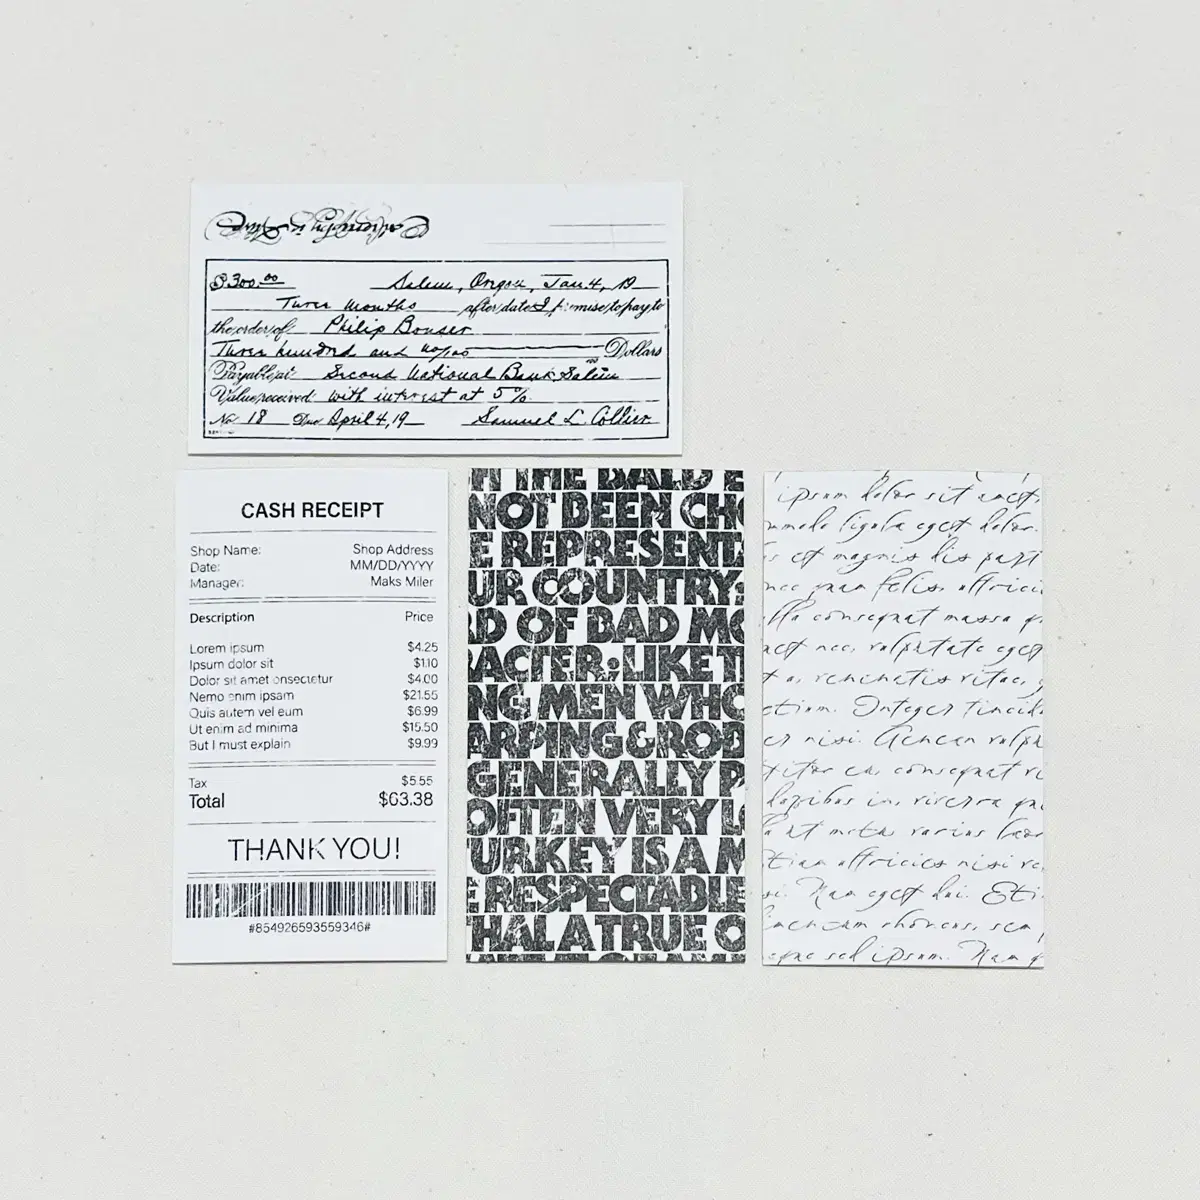 $300.00 Salem, Oregon, Jan 4, 19
Three months after date I promise to pay to
the order of Philip Bonser
Three hundred and no/100 Dollars
Payable at Second National Bank, Salem
Value received with interest at 5%.
No. 18 Due April 4, 19 Samuel L. Collier
CASH RECEIPT
Shop Name: Shop Address
Date: MM/DD/YYYY
Manager: Maks Miler
Description Price
Lorem ipsum $4.25
Ipsum dolor sit $1.10
Dolor sit amet onsectetur $4.00
Nemo enim ipsam $21.55
Quis autem vel eum $6.99
Ut enim ad minima $15.50
But I must explain $9.99
Tax $5.55
Total $63.38
THANK YOU!
#854926593559346#
H THE BALD E
NOT BEEN CHO
E REPRESENTA
UR COUNTRY:
RD OF BAD MO
RACTER; LIKE T
NG MEN WHO
ARPING & ROB
GENERALLY P
OFTEN VERY LO
TURKEY IS A M
E RESPECTABLE
HAL A TRUE O
ipsum dolor sit amet,
mmodo ligula eget dolor.
is et magnis dis part
nec quam felis, ultrici
lla consequat massa q
uet nec, vulputate eget
t a, venenatis vitae, j
etium. Integer tincid
er nisi. Aenean vulpu
ttitor eu, consequat vi
dapibus in, viverra qu
a ut metus varius laor
tiam ultricies nisi ve
si. Nam eget dui. Eti
imentum rhoncus, sem
eque sed ipsum. Nam q